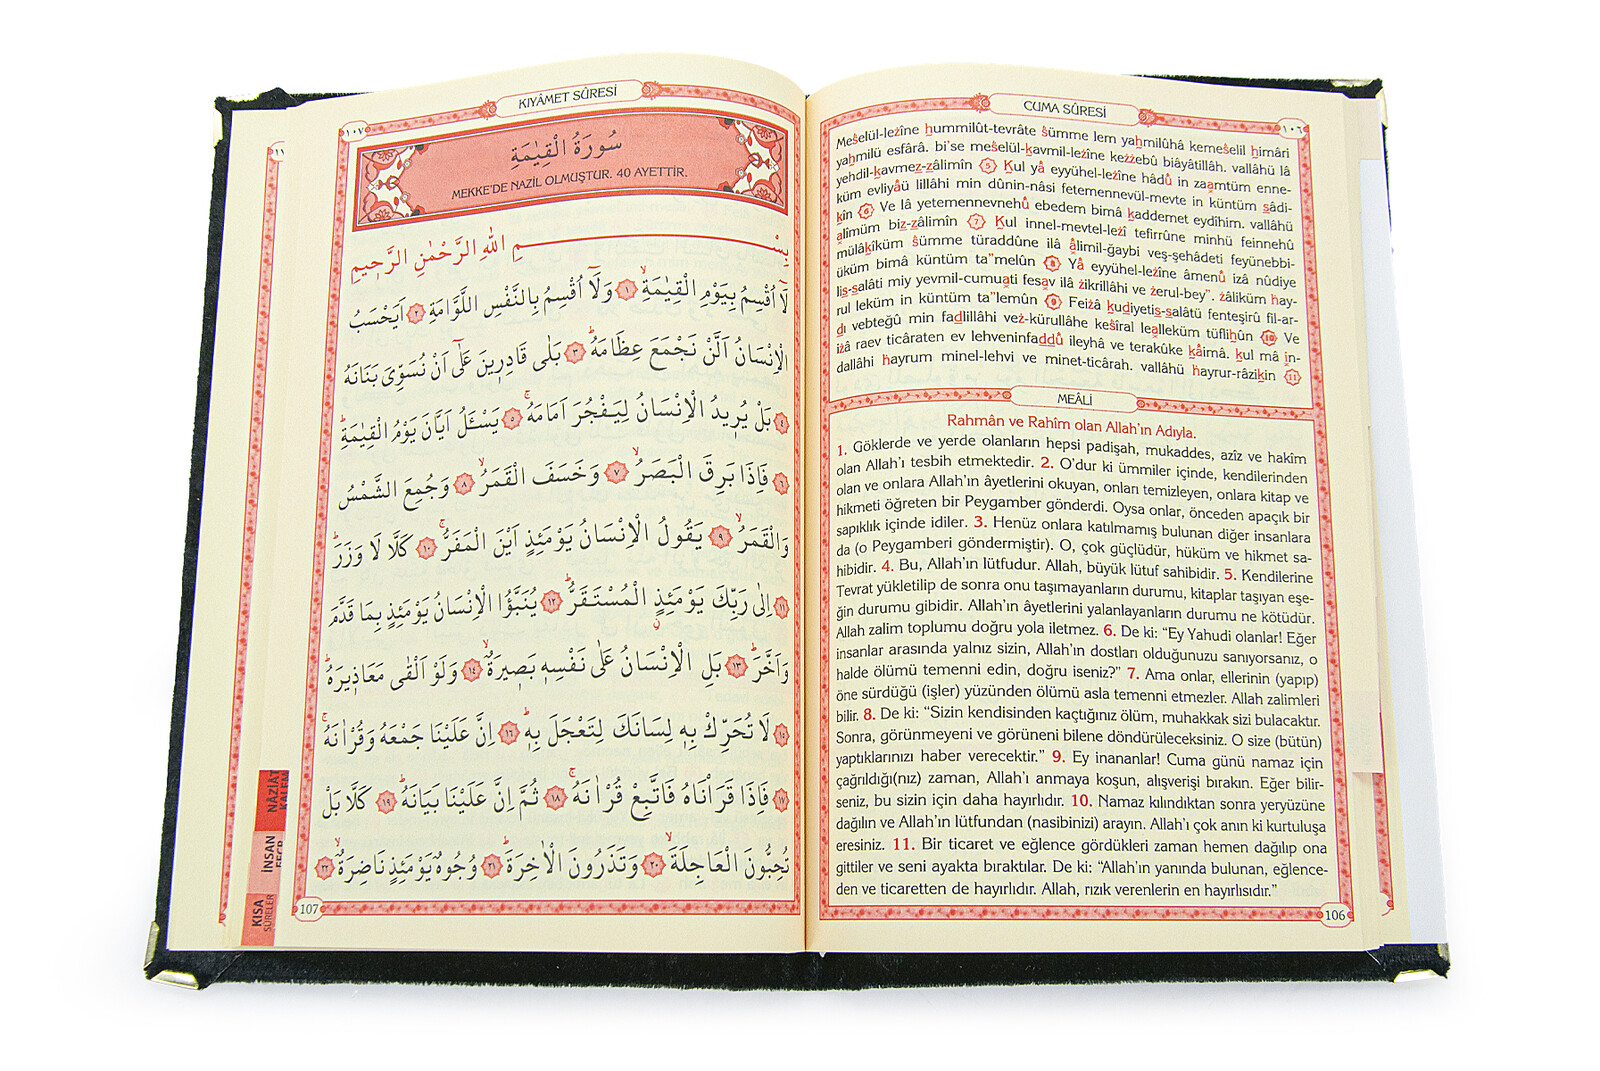 CUMA SÛRESİ
١٠٦
Meŝelül-leżîne ḥummilût-tevrâte ŝümme lem yaḥmilûhâ kemeŝelil ḥimâri
yaḥmilü esfârâ. bi'se meŝelül-kavmil-leżîne keżżebû biâyâtillâh. vallâhü lâ
yehdil-kavmez-zâlimîn 5 Kul yâ eyyühel-leżîne hâdû in zaamtüm enne-
küm evliyâü lillâhi min dûnin-nâsi fetemennevül-mevte in küntüm sâdi-
kîn 6 Ve lâ yetemennevnehû ebedem bimâ kaddemet eydîhim. vallâhü
alîmüm biz-zâlimîn 7 Kul innel-mevtel-leżî tefirrûne minhü feinnehû
mülâkîküm ŝümme türaddûne ilâ âlimil-ğaybi veş-şehâdeti feyünebbi-
üküm bimâ küntüm ta"melûn 8 Yâ eyyühel-leżîne âmenû iżâ nûdiye
lis-salâti miy yevmil-cumuati fesav ilâ żikrillâhi ve żerul-bey". żâliküm hay-
rul leküm in küntüm ta"lemûn 9 Feiżâ kudiyetis-salâtü fenteşirû fil-ar-
dı vebteğû min fadlillâhi veż-kürullâhe keŝîral lealleküm tüflihûn 10 Ve
iżâ raev ticâraten ev lehveninfaddû ileyhâ ve terakûke kâimâ. kul mâ ın-
dallâhi hayrum minel-lehvi ve minet-ticârah. vallâhü hayrur-râzikîn 11
MEÂLİ
Rahmân ve Rahîm olan Allah'ın Adıyla.
1. Göklerde ve yerde olanların hepsi padişah, mukaddes, azîz ve hakîm
olan Allah'ı tesbih etmektedir. 2. O'dur ki ümmiler içinde, kendilerinden
olan ve onlara Allah'ın âyetlerini okuyan, onları temizleyen, onlara kitap ve
hikmeti öğreten bir Peygamber gönderdi. Oysa onlar, önceden apaçık bir
sapıklık içinde idiler. 3. Henüz onlara katılmamış bulunan diğer insanlara
da (o Peygamberi göndermiştir). O, çok güçlüdür, hüküm ve hikmet sa-
hibidir. 4. Bu, Allah'ın lütfudur. Allah, büyük lütuf sahibidir. 5. Kendilerine
Tevrat yükletilip de sonra onu taşımayanların durumu, kitaplar taşıyan eşe-
ğin durumu gibidir. Allah'ın âyetlerini yalanlayanların durumu ne kötüdür.
Allah zalim toplumu doğru yola iletmez. 6. De ki: "Ey Yahudi olanlar! Eğer
insanlar arasında yalnız sizin, Allah'ın dostları olduğunuzu sanıyorsanız, o
halde ölümü temenni edin, doğru iseniz?" 7. Ama onlar, ellerinin (yapıp)
öne sürdüğü (işler) yüzünden ölümü asla temenni etmezler. Allah zalimleri
bilir. 8. De ki: "Sizin kendisinden kaçtığınız ölüm, muhakkak sizi bulacaktır.
Sonra, görünmeyeni ve görüneni bilene döndürüleceksiniz. O size (bütün)
yaptıklarınızı haber verecektir." 9. Ey inananlar! Cuma günü namaz için
çağrıldığı(nız) zaman, Allah'ı anmaya koşun, alışverişi bırakın. Eğer bilir-
seniz, bu sizin için daha hayırlıdır. 10. Namaz kılındıktan sonra yeryüzüne
dağılın ve Allah'ın lütfundan (nasibinizi) arayın. Allah'ı çok anın ki kurtuluşa
eresiniz. 11. Bir ticaret ve eğlence gördükleri zaman hemen dağılıp ona
gittiler ve seni ayakta bıraktılar. De ki: "Allah'ın yanında bulunan, eğlence-
den ve ticaretten de hayırlıdır. Allah, rızık verenlerin en hayırlısıdır."
106
KIYÂMET SÛRESİ
١٠٧
سُورَةُ الْقِيٰمَةِ
MEKKE'DE NAZİL OLMUŞTUR. 40 AYETTİR.
بِسْمِ اللّٰهِ الرَّحْمٰنِ الرَّحِيمِ
لَٓا اُقْسِمُ بِيَوْمِ الْقِيٰمَةِۙ ١ وَلَٓا اُقْسِمُ بِالنَّفْسِ اللَّوَّامَةِ ٢ اَيَحْسَبُ
الْاِنْسَانُ اَلَّنْ نَجْمَعَ عِظَامَهُؕ ٣ بَلٰى قَادِرِينَ عَلٰٓى اَنْ نُسَوِّيَ بَنَانَهُ
٤ بَلْ يُرِيدُ الْاِنْسَانُ لِيَفْجُرَ اَمَامَهُۚ ٥ يَسْـَٔلُ اَيَّانَ يَوْمُ الْقِيٰمَةِؕ
٦ فَاِذَا بَرِقَ الْبَصَرُۙ ٧ وَخَسَفَ الْقَمَرُۙ ٨ وَجُمِعَ الشَّمْسُ
وَالْقَمَرُۙ ٩ يَقُولُ الْاِنْسَانُ يَوْمَئِذٍ اَيْنَ الْمَفَرُّۚ ١٠ كَلَّا لَا وَزَرَؕ
١١ اِلٰى رَبِّكَ يَوْمَئِذٍ الْمُسْتَقَرُّؕ ١٢ يُنَبَّؤُا الْاِنْسَانُ يَوْمَئِذٍ بِمَا قَدَّمَ
وَاَخَّرَؕ ١٣ بَلِ الْاِنْسَانُ عَلٰى نَفْسِهِ بَصِيرَةٌۙ ١٤ وَلَوْ اَلْقٰى مَعَاذِيرَهُؕ
١٥ لَا تُحَرِّكْ بِهِ لِسَانَكَ لِتَعْجَلَ بِهِؕ ١٦ اِنَّ عَلَيْنَا جَمْعَهُ وَقُرْاٰنَهُۚ
١٧ فَاِذَا قَرَاْنَاهُ فَاتَّبِعْ قُرْاٰنَهُۚ ١٨ ثُمَّ اِنَّ عَلَيْنَا بَيَانَهُؕ ١٩ كَلَّا بَلْ
تُحِبُّونَ الْعَاجِلَةَۙ ٢٠ وَتَذَرُونَ الْاٰخِرَةَؕ ٢١ وُجُوهٌ يَوْمَئِذٍ نَاضِرَةٌۙ ٢٢
107
NÂZİÂT
KALEM
İNSAN
KISA
SÛRELER